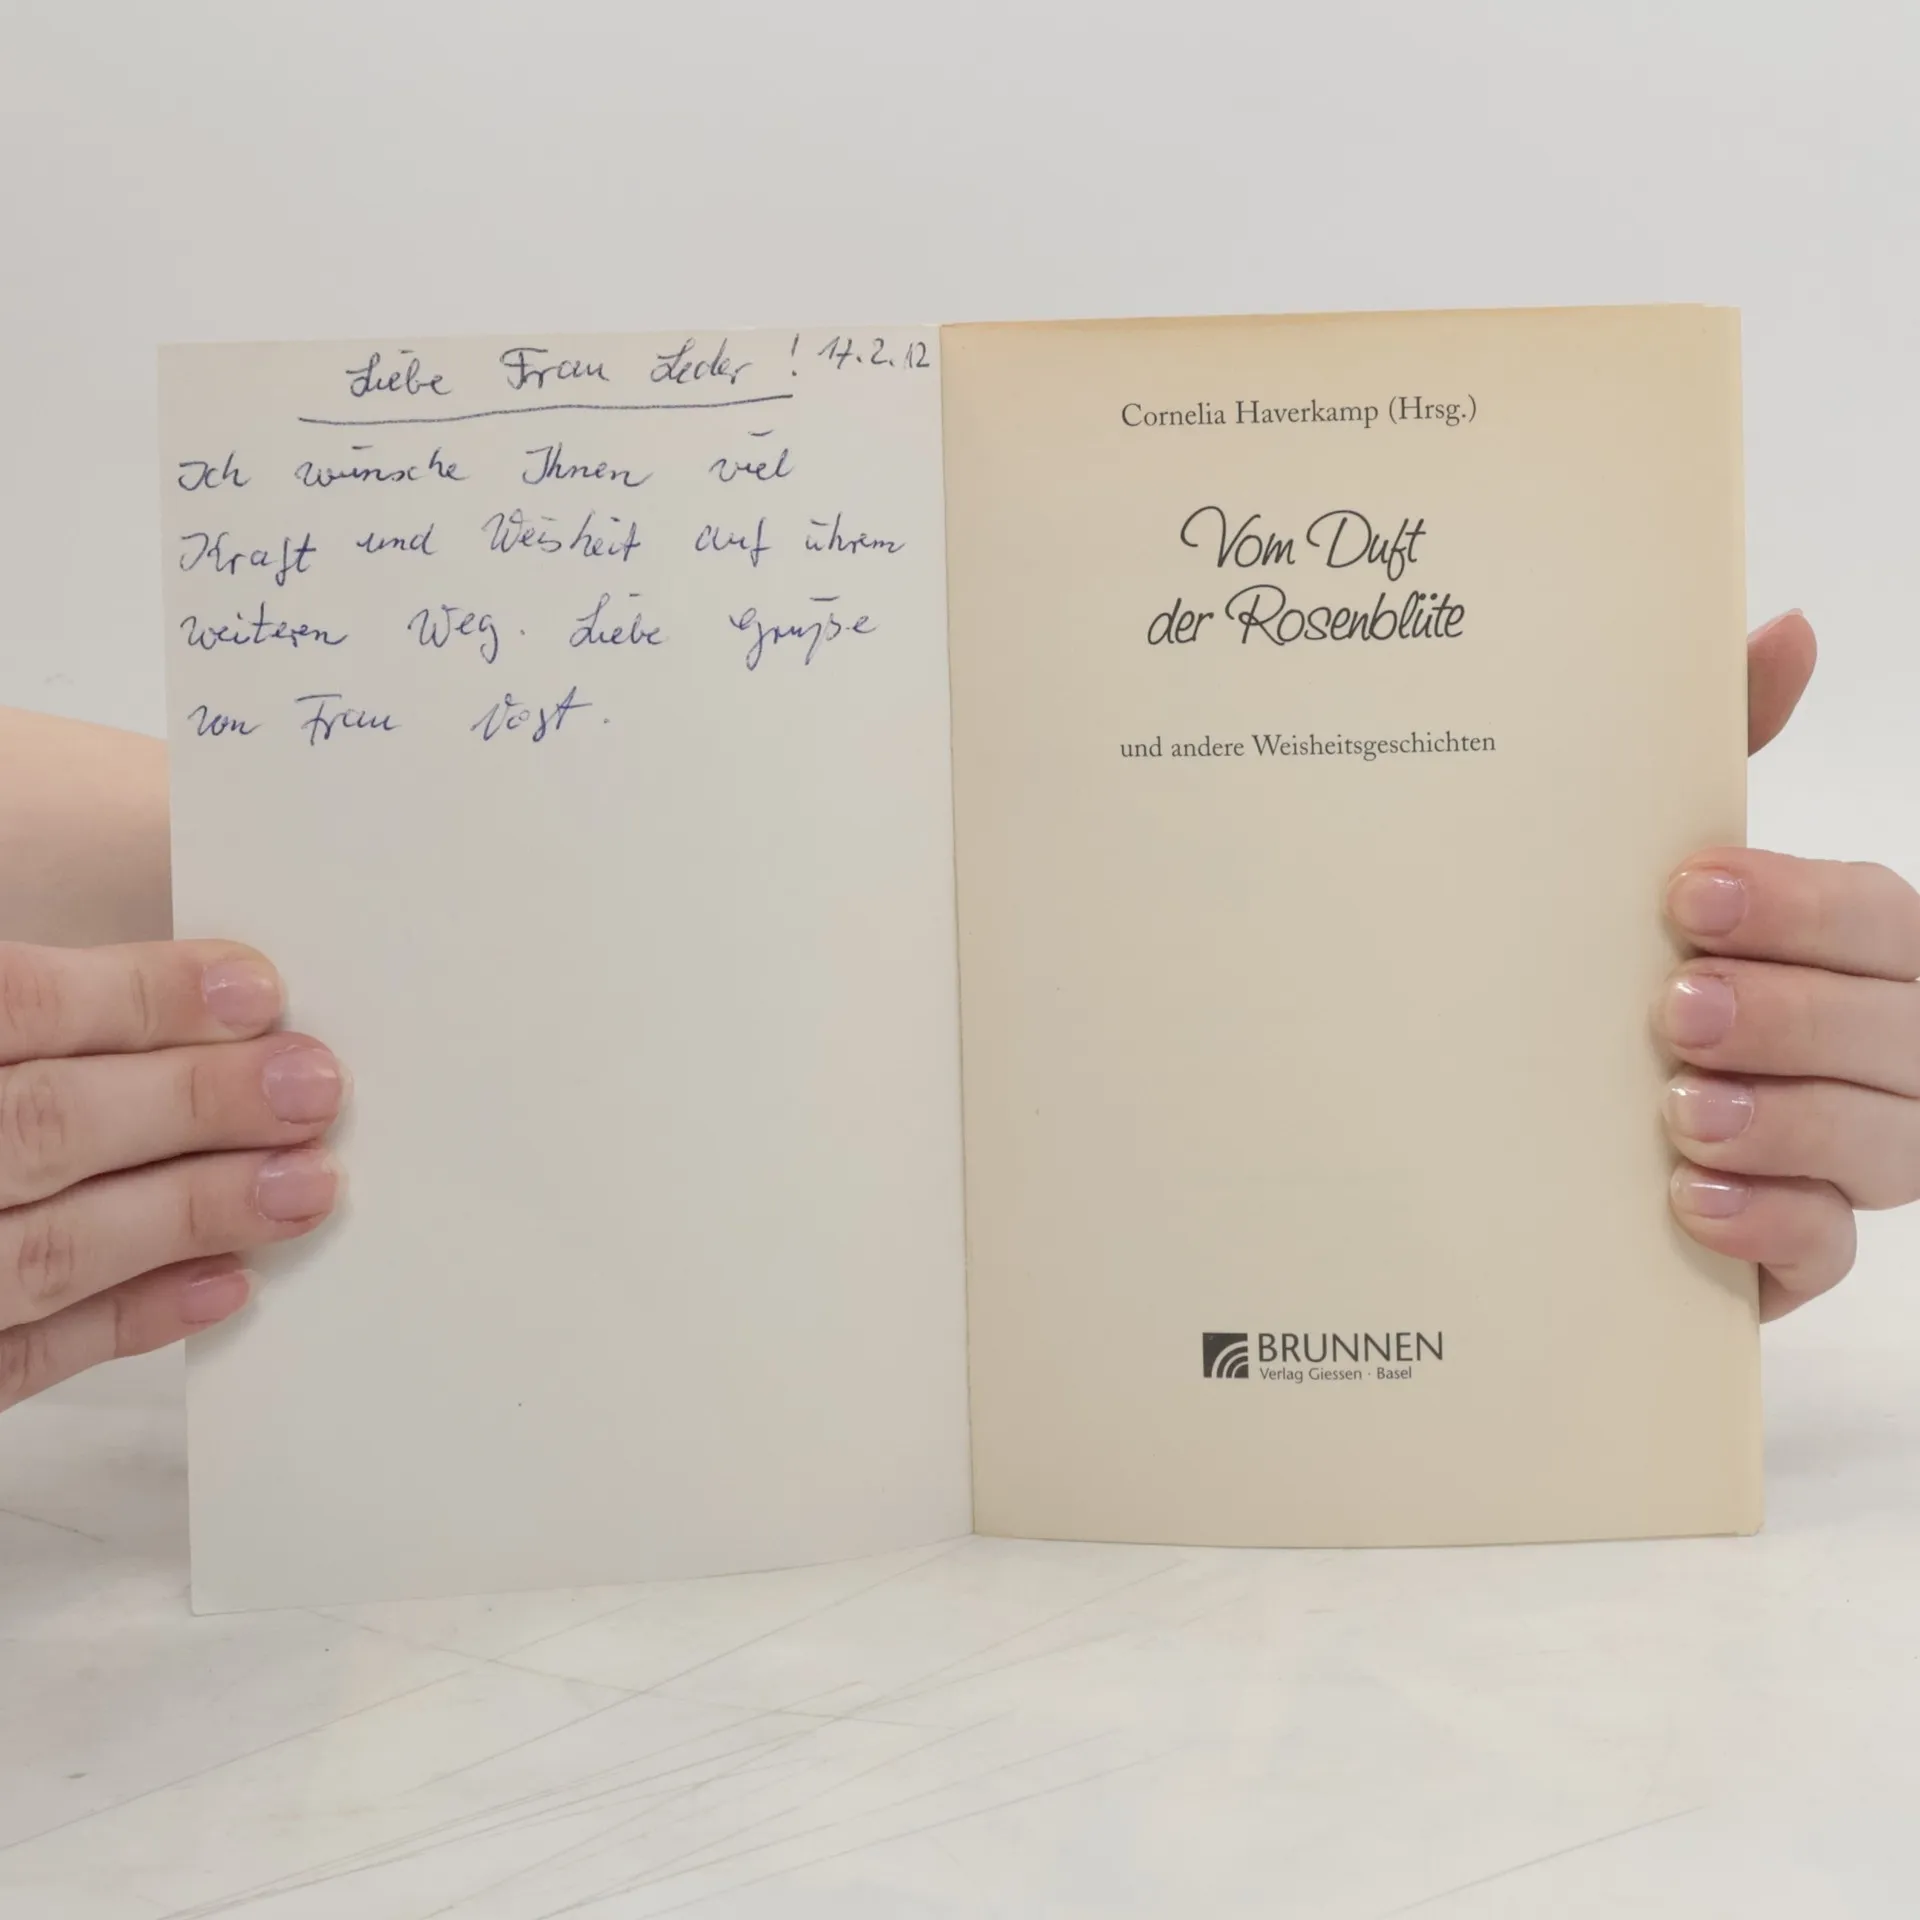 Liebe Frau Leder ! 17.2.12
Ich wünsche Ihnen viel
Kraft und Weisheit auf ihrem
weiteren Weg. Liebe Grüße
von Frau Vogt.
Cornelia Haverkamp (Hrsg.)
Vom Duft
der Rosenblüte
und andere Weisheitsgeschichten
BRUNNEN
Verlag Giessen · Basel